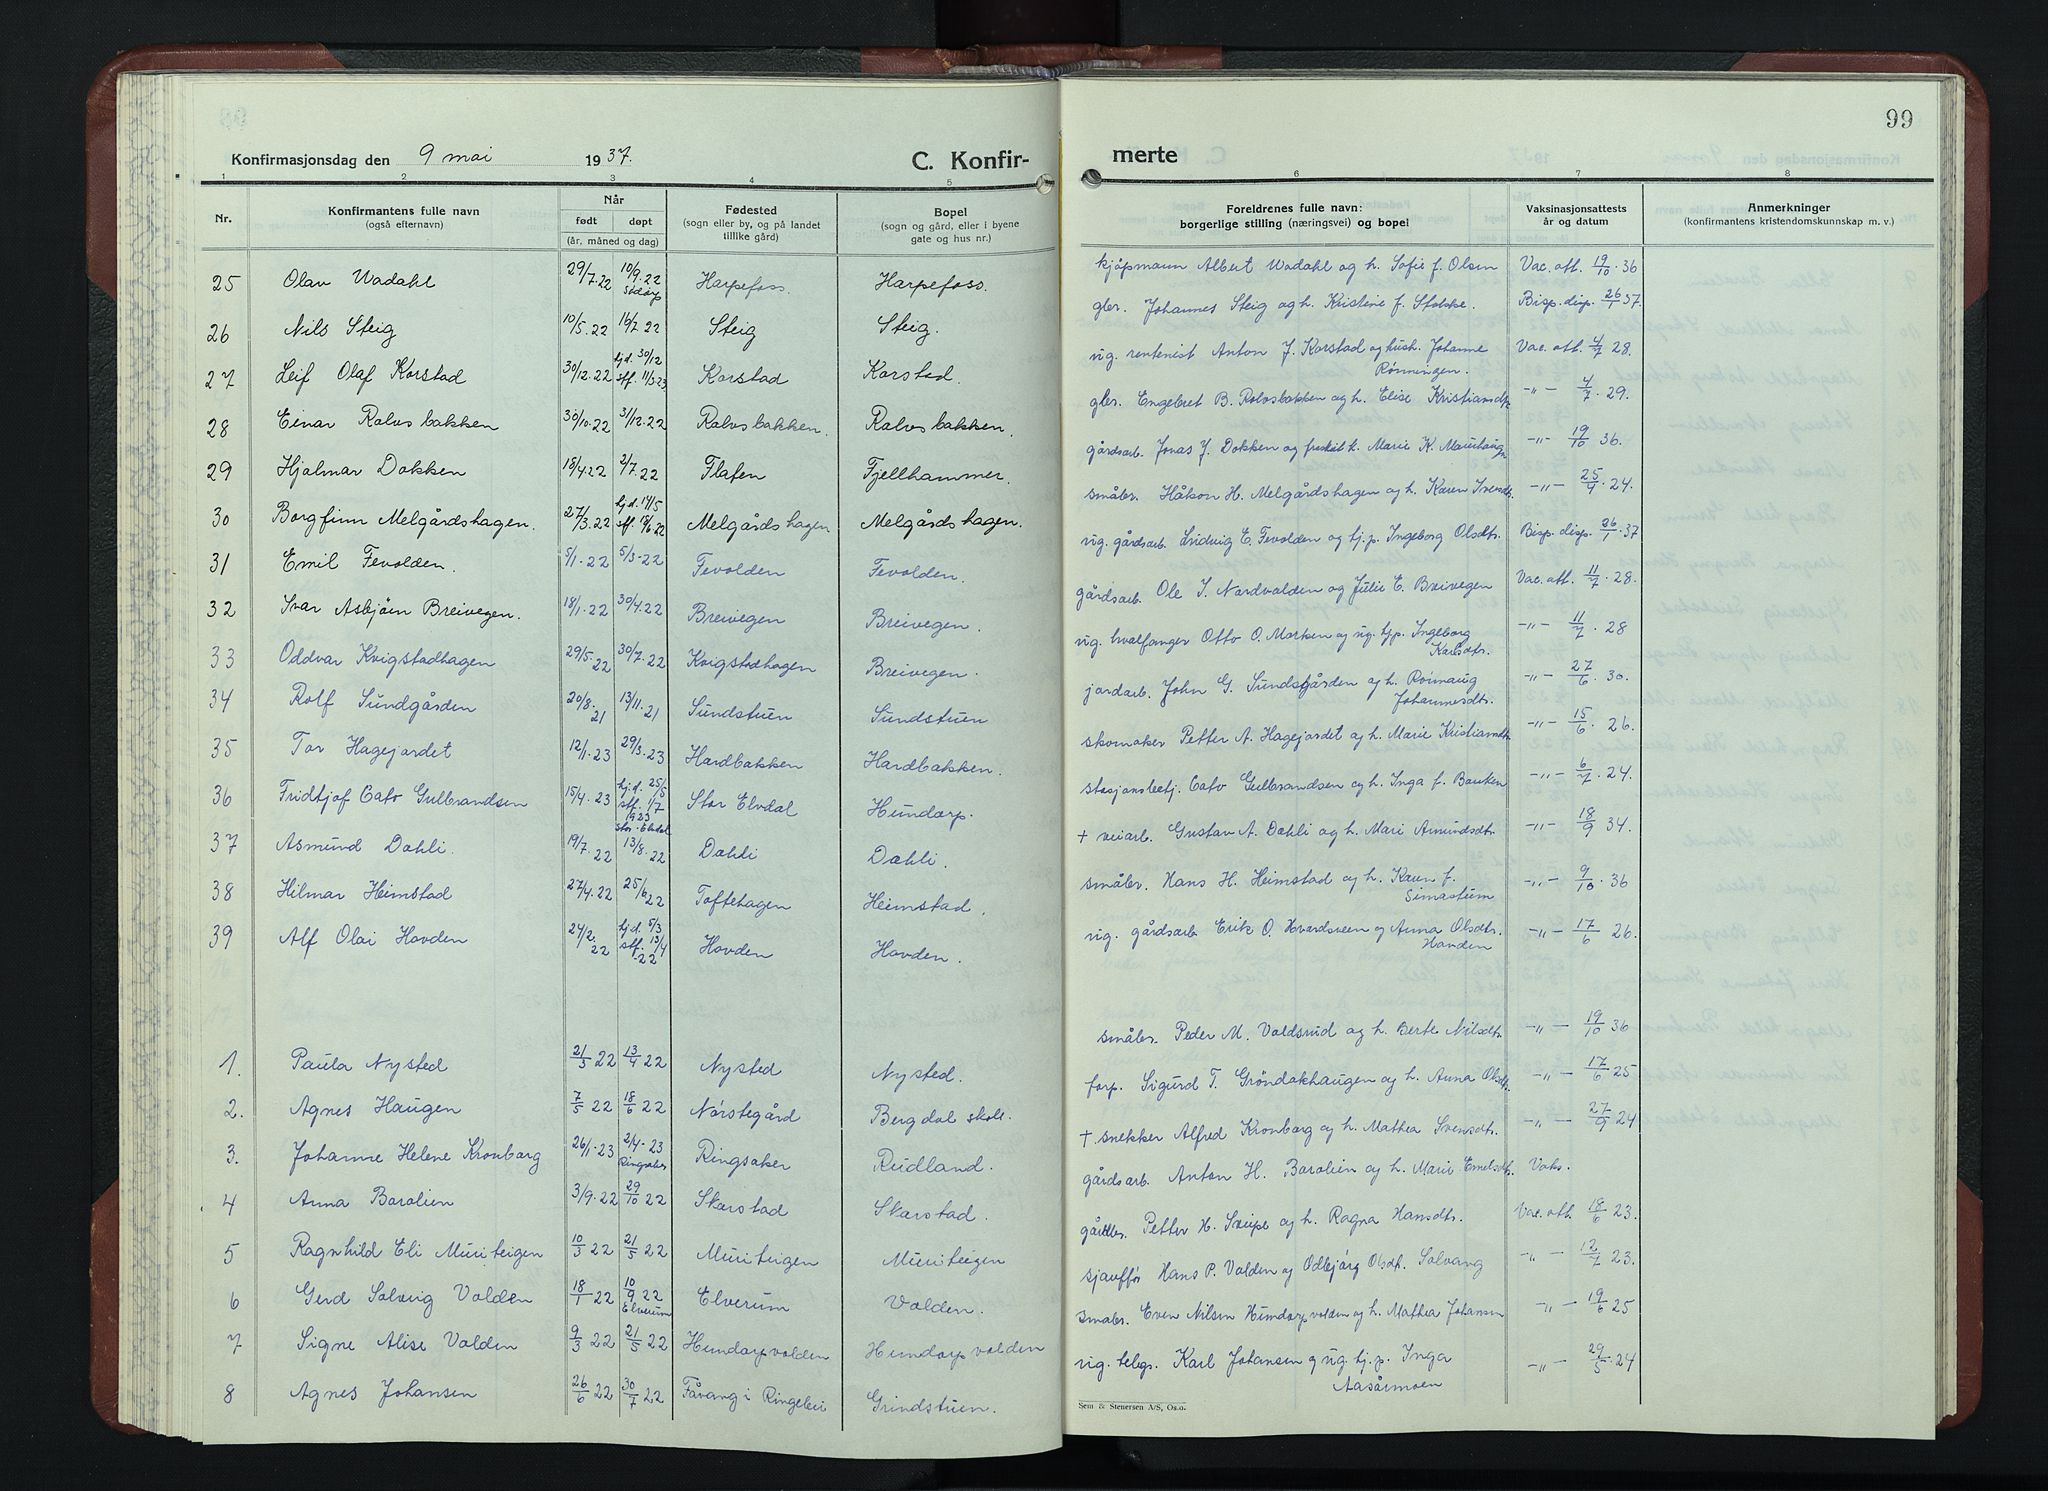 99
Konfirmasjonsdag den 9 mai 1937. C. Konfir- merte
1 2 3 4 5 6 7 8
Nr. Konfirmantens fulle navn (også efternavn) Når født døpt (år, måned og dag) Fødested (sogn eller by, og på landet tillike gård) Bopel (sogn og gård, eller i byene gate og hus nr.) Foreldrenes fulle navn: borgerlige stilling (næringsvei) og bopel Vaksinasjonsattests år og datum Anmerkninger (konfirmantens kristendomskunnskap m. v.)
25 Olav Wadahl 29/7.22 10/9.22 Sødorp Harpefoss. Harpefoss. kjøpmann Albert Wadahl og h. Sofie f. Olsen Vac. att. 19/10.36
26 Nils Steig 10/5.22 16/7.22 Steig Steig. gbr. Johannes Steig og h. Kristine f. Stokke. Bisp. disp. 26/1 37.
27 Leif Olaf Korstad 30/12.22 hj.d. 30/12 stf. 11/3 23 Korstad Korstad. ug. rentenist Anton J. Korstad og hush. Johanne Rønningen. Vac. att. 4/7 28.
28 Einar Rolvsbakken 30/10.22 31/12.22 Rolvsbakken. Rolvsbakken. gbr. Engebret B. Rolvsbakken og h. Elise Kristiansdtr. -"- 4/7.29.
29 Hjalmar Dokken 15/4.22 2/7.22 Flaten Fjellhammer. gårdsarb. Jonas J. Dokken og fraskilt h. Marie K. Maurhaugn -"- 19/10 36.
30 Borgfinn Melgårdshagen. 27/3.22 hj.d. 14/5 stf. 18/6 22 Melgårdshagen Melgårdshagen. småbr. Håkon H. Melgårdshagen og h. Karen Svensdtr. -"- 25/9.24.
31 Emil Fevolden. 5/1-22 5/3-22 Fevolden Fevolden. ug. gårdsarb. Ludvig E. Fevolden og hj.p. Ingeborg Olsdtr. Bisp. disp. 26/1.37
32 Ivar Asbjøin Breivegen. 18/1.22 30/4.22 Breivegen Breivegen. gårdsarb. Ole I. Nordvolden og Julie E. Breivegen Vac. att. 11/7.28.
33 Oddvar Kvigstadhagen 29/5.22 30/7.22 Kvigstadhagen Breivegen. ug. hvalfanger Otto O. Morken og ug. hjp. Ingeborg Karlsdtr. -"- 11/7.28
34 Rolf Sundgården 20/8.21 13/11.21 Sundstuen Sundstuen jordarb. John G. Sundsgården og h. Rønnaug Johannesdtr. -"- 27/6.30.
35 Tor Hagejordet 12/1.23 29/3.23 Hardbakken Hardbakken. skomaker Petter A. Hagejordet og h. Marie Kristiansdtr. -"- 15/6.26.
36 Fridtjof Cato Gulbrandsen 15/4.23 hj.d. 25/5 stf. 1/7 1923 Stor-Elvdal Stor Elvdal Hundorp. stasjonsbetj. Cato Gulbrandsen og h. Inga f. Bauken -"- 6/7.24.
37 Asmund Dahli. 19/7.22 13/8.22 Dahli Dahli. + veiarb. Gustav A. Dahli og h. Mari Amundsdtr. -"- 18/9 34.
38 Hilmar Heimstad 27/4.22 25/6 22 Toftehagen Heimstad. småbr. Hans H. Heimstad og h. Karen f. Simastuen -"- 9/10.36
39 Alf Olai Hovden 24/2.22 hj.d. 5/3 stf. 13/4 -22 Hovden Hovden. ug. gårdsarb Erik O. Hvardsveen og Anna Olsdtr. Hovden -"- 17/6 26.
1. Paula Nysted 21/3 22 13/4 22 Nysted Nysted. småbr. Peder M. Voldsrud og h. Berte Nilsdtr. -"- 19/10 36
2. Agnes Haugen 7/5 22 18/6 22 Nørstegård Bergdal skole. forp. Sigurd T. Grøndokhaugen og h. Anna Olsdtr. -"- 17/6 25
3. Johanne Helene Kronborg 26/1-23 2/4-23 Ringsaker Ringsaker Rudland. + snekker Alfred Kronborg og h. Mathea Svensdtr. -"- 27/9 24
4 Anna Barolien 3/9.22 29/10 22 Skarstad Skarstad. gårdsarb. Anton H. Barolien og h. Marie Emelsdtr. Vaks.
5 Ragnhild Eli Muriteigen 10/3 22 21/5 22 Muriteigen Muriteigen Petter H. Svipe og h. Ragna Hansdtr. Vac. att. 18/6 23.
6 Gerd Solveig Volden 18/1 22 10/9 22 Elverum Elverum Volden. sjauffør Hans P. Volden og Odbjørg Olsdt. Solvang -"- 12/7 23.
7 Signe Alise Volden 9/3 22 21/5 22 Hundorpvolden Hundorpvolden småbr. Even Nilsen Hundorpvolden og h. Mathea Johansen -"- 19/6 25
8 Agnes Johansen 26/6 22 30/7 22 Fåvang i Ringebu Grindstuen. ug. telegr. Karl Johansen og ug. hj.p. Inga Aasårmoen -"- 29/5.24
Sem & Stenersen A/S, Oslo.